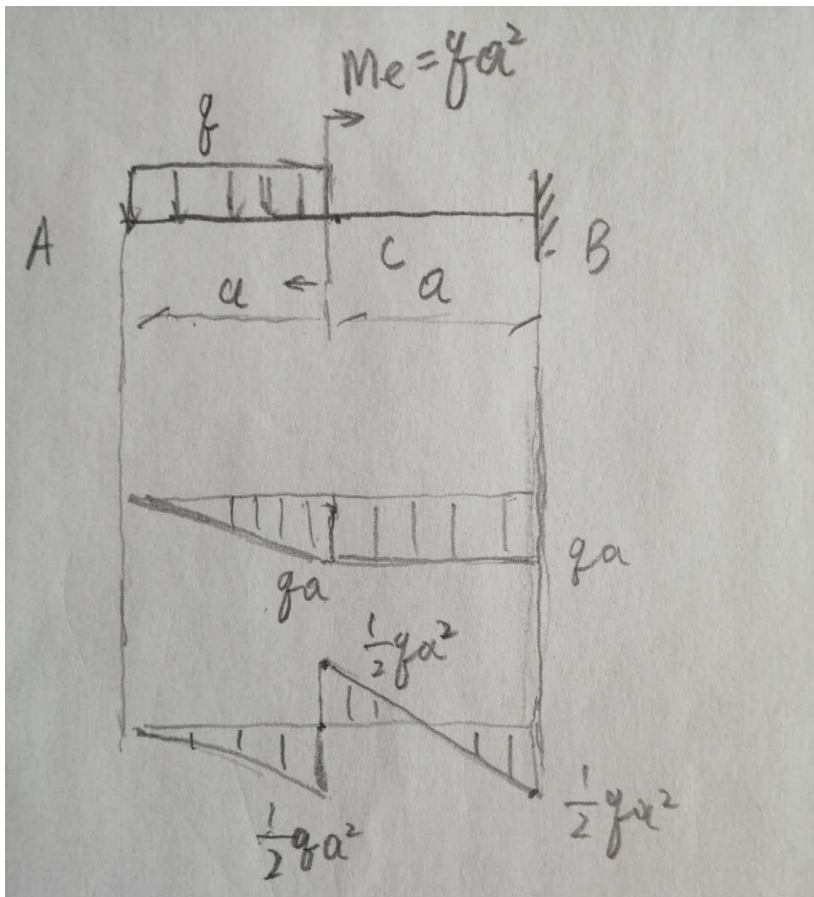 Me = qa²
q
A
C
B
a
a
qa
qa
1/2 qa²
1/2 qa²
1/2 qa²